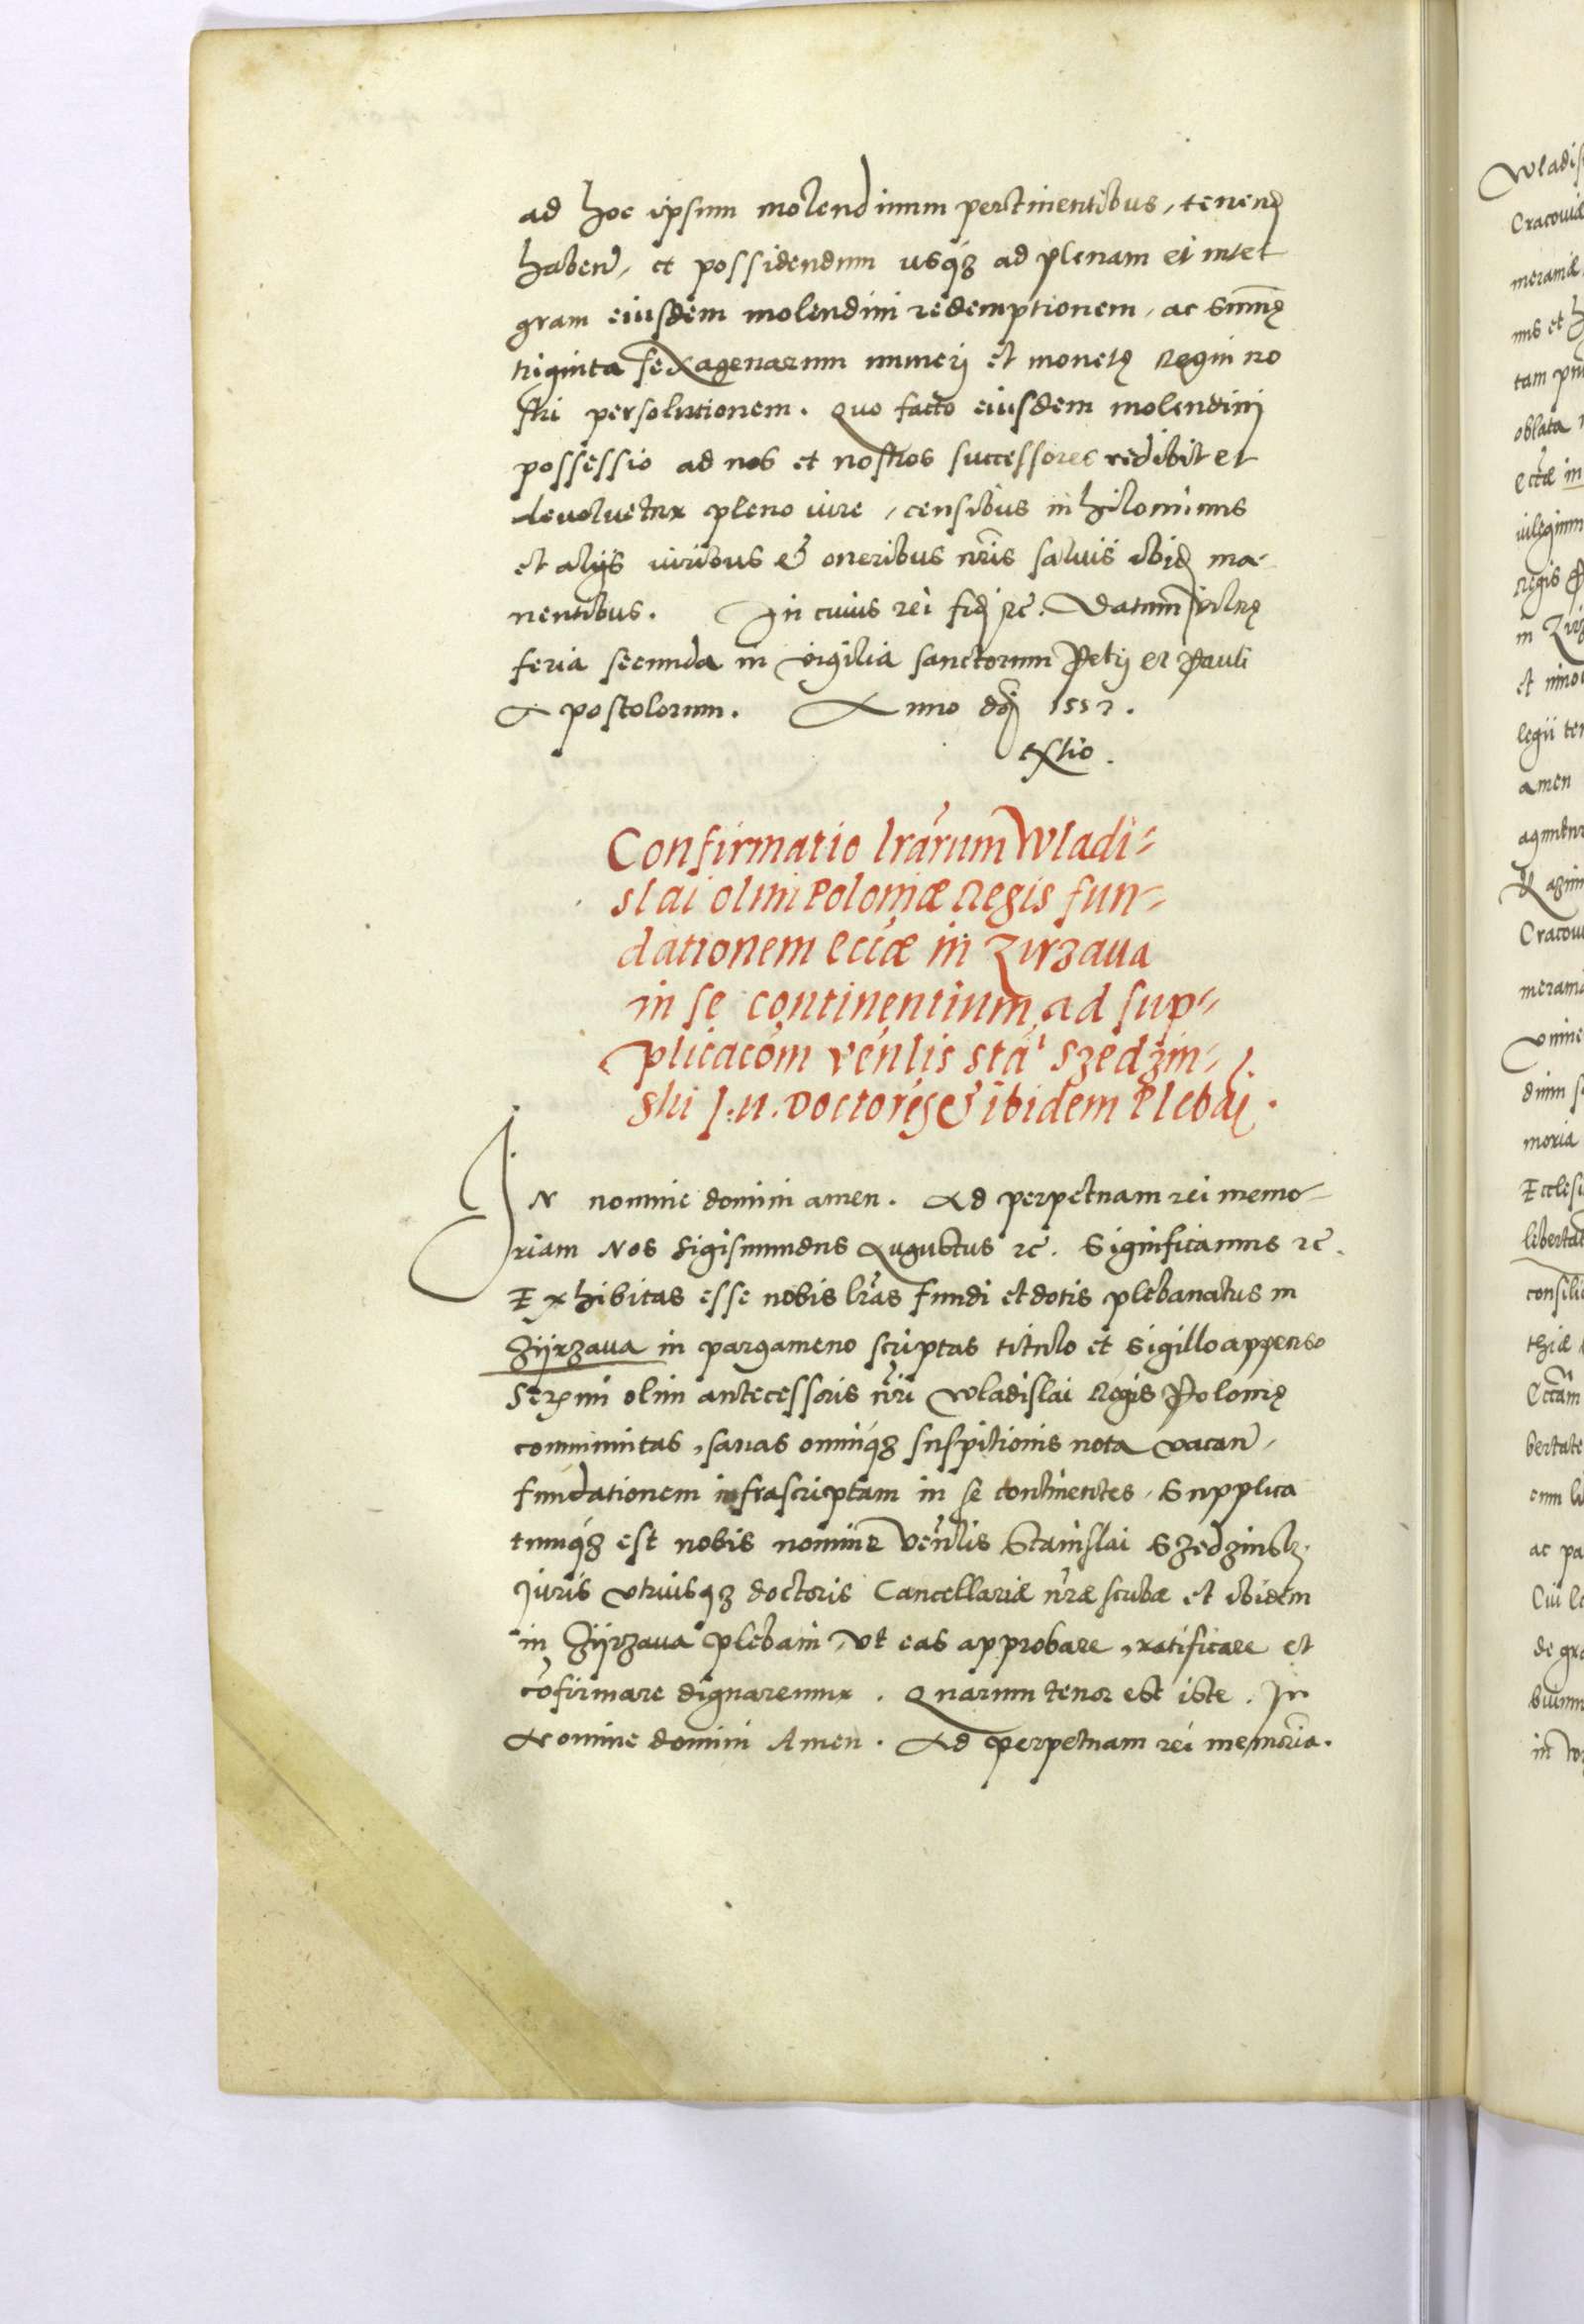 ad hoc ipsum molendinum pertinentibus, tenend
haben, et possidendum usqz ad plenam et inte
gram eiusdem molendini redemptionem, ac summę
triginta sexagenarum numeri et monetę Regni no
stri persolutionem. Quo facto eiusdem molendini
possessio ad nos et nostros successores redibit et
devoluetur pleno iure, censibus nihilominus
et alijs iuribus & oneribus nris saluis ibid ma-
nentibus. In cuius rei fid rc. Datum vilnę
feria secunda in vigilia sanctorum Petri et Pauli
Apostolorum. Anno dni 1552.
Confirmatio lrarum Wladi-
slai olim Poloniæ Regis fun-
dationem eccæ in Zirzava
in se continentium ad sup-
plicacom venlis sta Szedzin-
ski J. U. Doctoris & ibidem Plebai.
IN nomine domini amen. Ad perpetuam rei memo-
riam Nos Sigismundus Augustus rc. Significamus rc.
Exhibitas esse nobis lras fundi et dotis plebanatus in
Zijrzaua in pargameno scriptas titulo et sigillo appenso
Sermi olim antecessoris nri Wladislai Regis Polonię
communitas, sanas omniqz suspitionis nota vacan,
fundationem infrascriptam in se continentes, Supplica
tumqz est nobis nomine venlis Stanislai Szedzinsk
Juris vtriusqz doctoris Cancellariæ nræ scribæ et ibidem
in Zijrzaua plebani, vt eas approbare, ratificare et
cofirmare dignaremur. Quarum tenor est iste. In
Nomine domini Amen. Ad perpetuam rei memoria.
Wladis
Cracouiæ
meraniæ
tam
oblata
in
Regis
in
et
legii
amen
Cracou
moria
Ecclesi
libertat
consili
bertate
ac pa
de gra